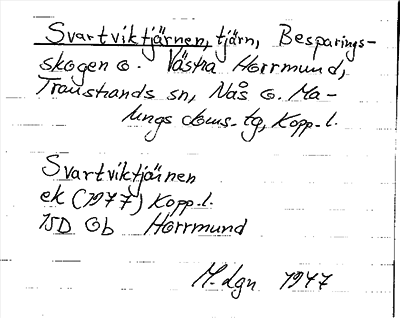 Svartviktjärnen, tjärn, Besparings-
skogen o. Västra Horrmund,
Transtrands sn, Nås o. Ma-
lungs doms. tg, Kopp. l.
Svartviktjärnen
ek (1977) Kopp. l.
15D Ob Horrmund
M. dgn 1947